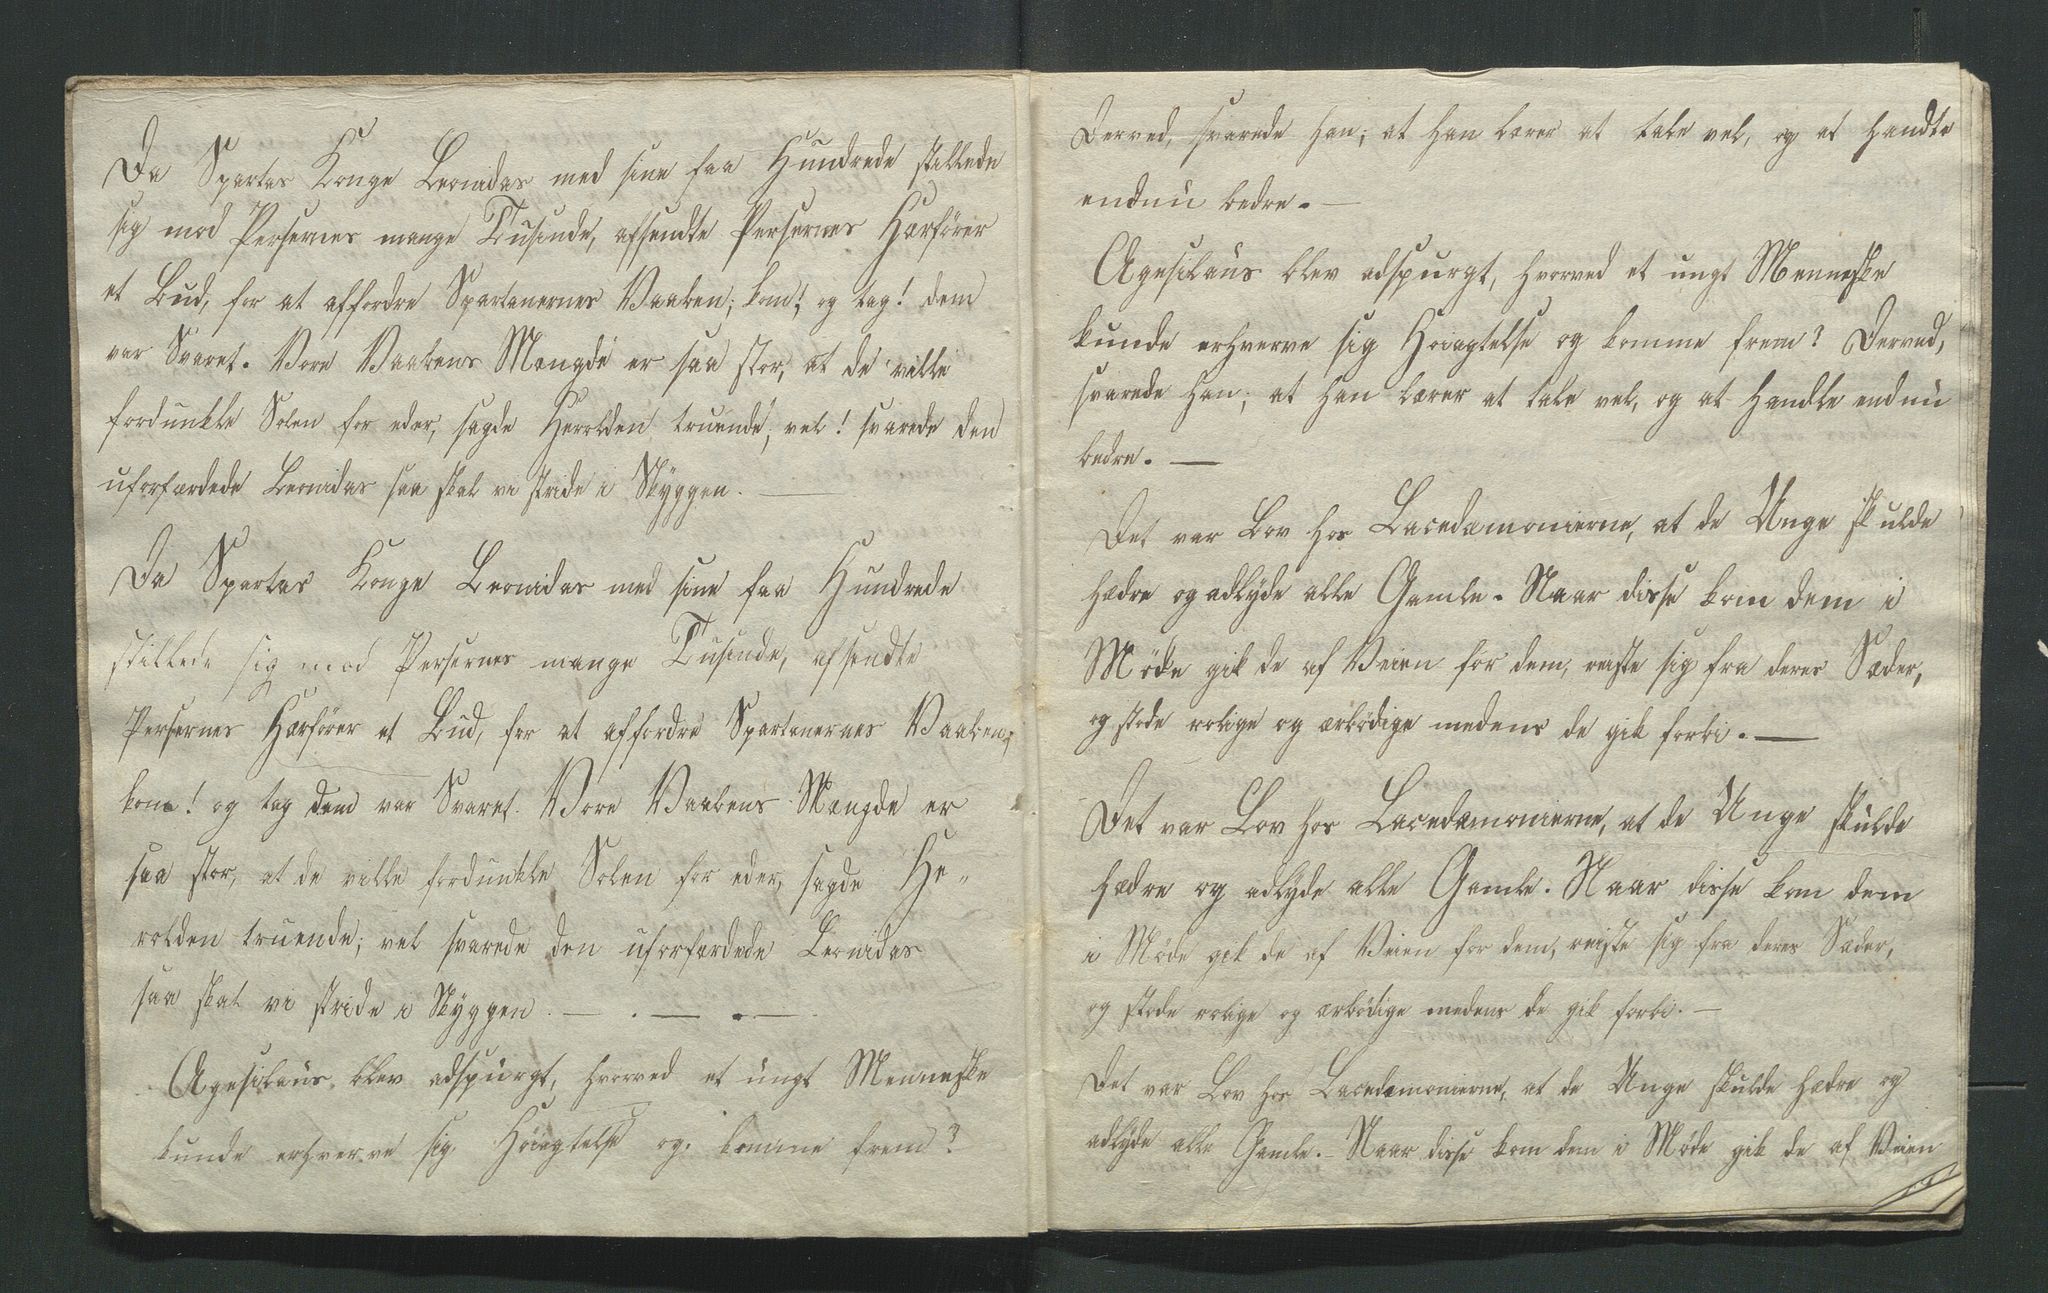 Da Spartas Konge Leonidas med sine faa Hundrede stillede
sig mod Persernes mange Tusinde, afsendte Persernes Hærfører
et Bud, for at affordre Spartanernes Vaaben; kom! og tag! dem
var Svaret. Vore Vaabens Mængde er saa stor, at de ville
fordunkle Solen for eder, sagde Herolden truende; vel! svarede den
uforfærdede Leonidas saa skal vi stride i Skyggen. —
Da Spartas Konge Leonidas med sine faa Hundrede
stillede sig mod Persernes mange Tusinde, afsendte
Persernes Hærfører et Bud, for at affordre Spartanernes Vaaben;
kom! og tag dem var Svaret. Vore Vaabens Mængde er
saa stor, at de ville fordunkle Solen for eder, sagde He-
rolden truende; vel svarede den uforfærdede Leonidas
saa skal vi stride i Skyggen. — . — . —
Agesilaus blev adspurgt, hvorved et ungt Menneske
kunde erhverve sig Høiagtelse og komme frem?
Derved, svarede han; at han lærer at tale vel, og at handle
endnu bedre. —
Agesilaus blev adspurgt, hvorved et ungt Menneske
kunde erhverve sig Høiagtelse og komme frem? Derved,
svarede han; at han lærer at tale vel, og at handle endnu
bedre. —
Det var Lov hos Lacedæmonierne, at de Unge skulde
hædre og adlyde alle Gamle. Naar disse kom dem i
Møde gik de af Veien for dem, reiste sig fra deres Sæder,
og stode rolige og ærbødige medens de gik forbi. —
Det var Lov hos Lacedæmonierne, at de Unge skulde
hædre og adlyde alle Gamle. Naar disse kom dem
i Møde gik de af Veien for dem, reiste sig fra deres Sæder,
og stode rolige og ærbødige medens de gik forbi. —
Det var Lov hos Lacedæmonierne, at de Unge skulde hædre og
adlyde alle Gamle. – Naar disse kom dem i Møde gik de af Veien